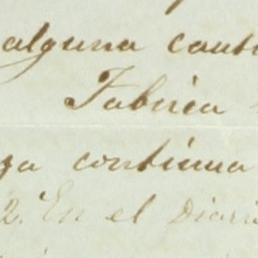 alguna canti
Fabrica
ga continua
2. En el Diari